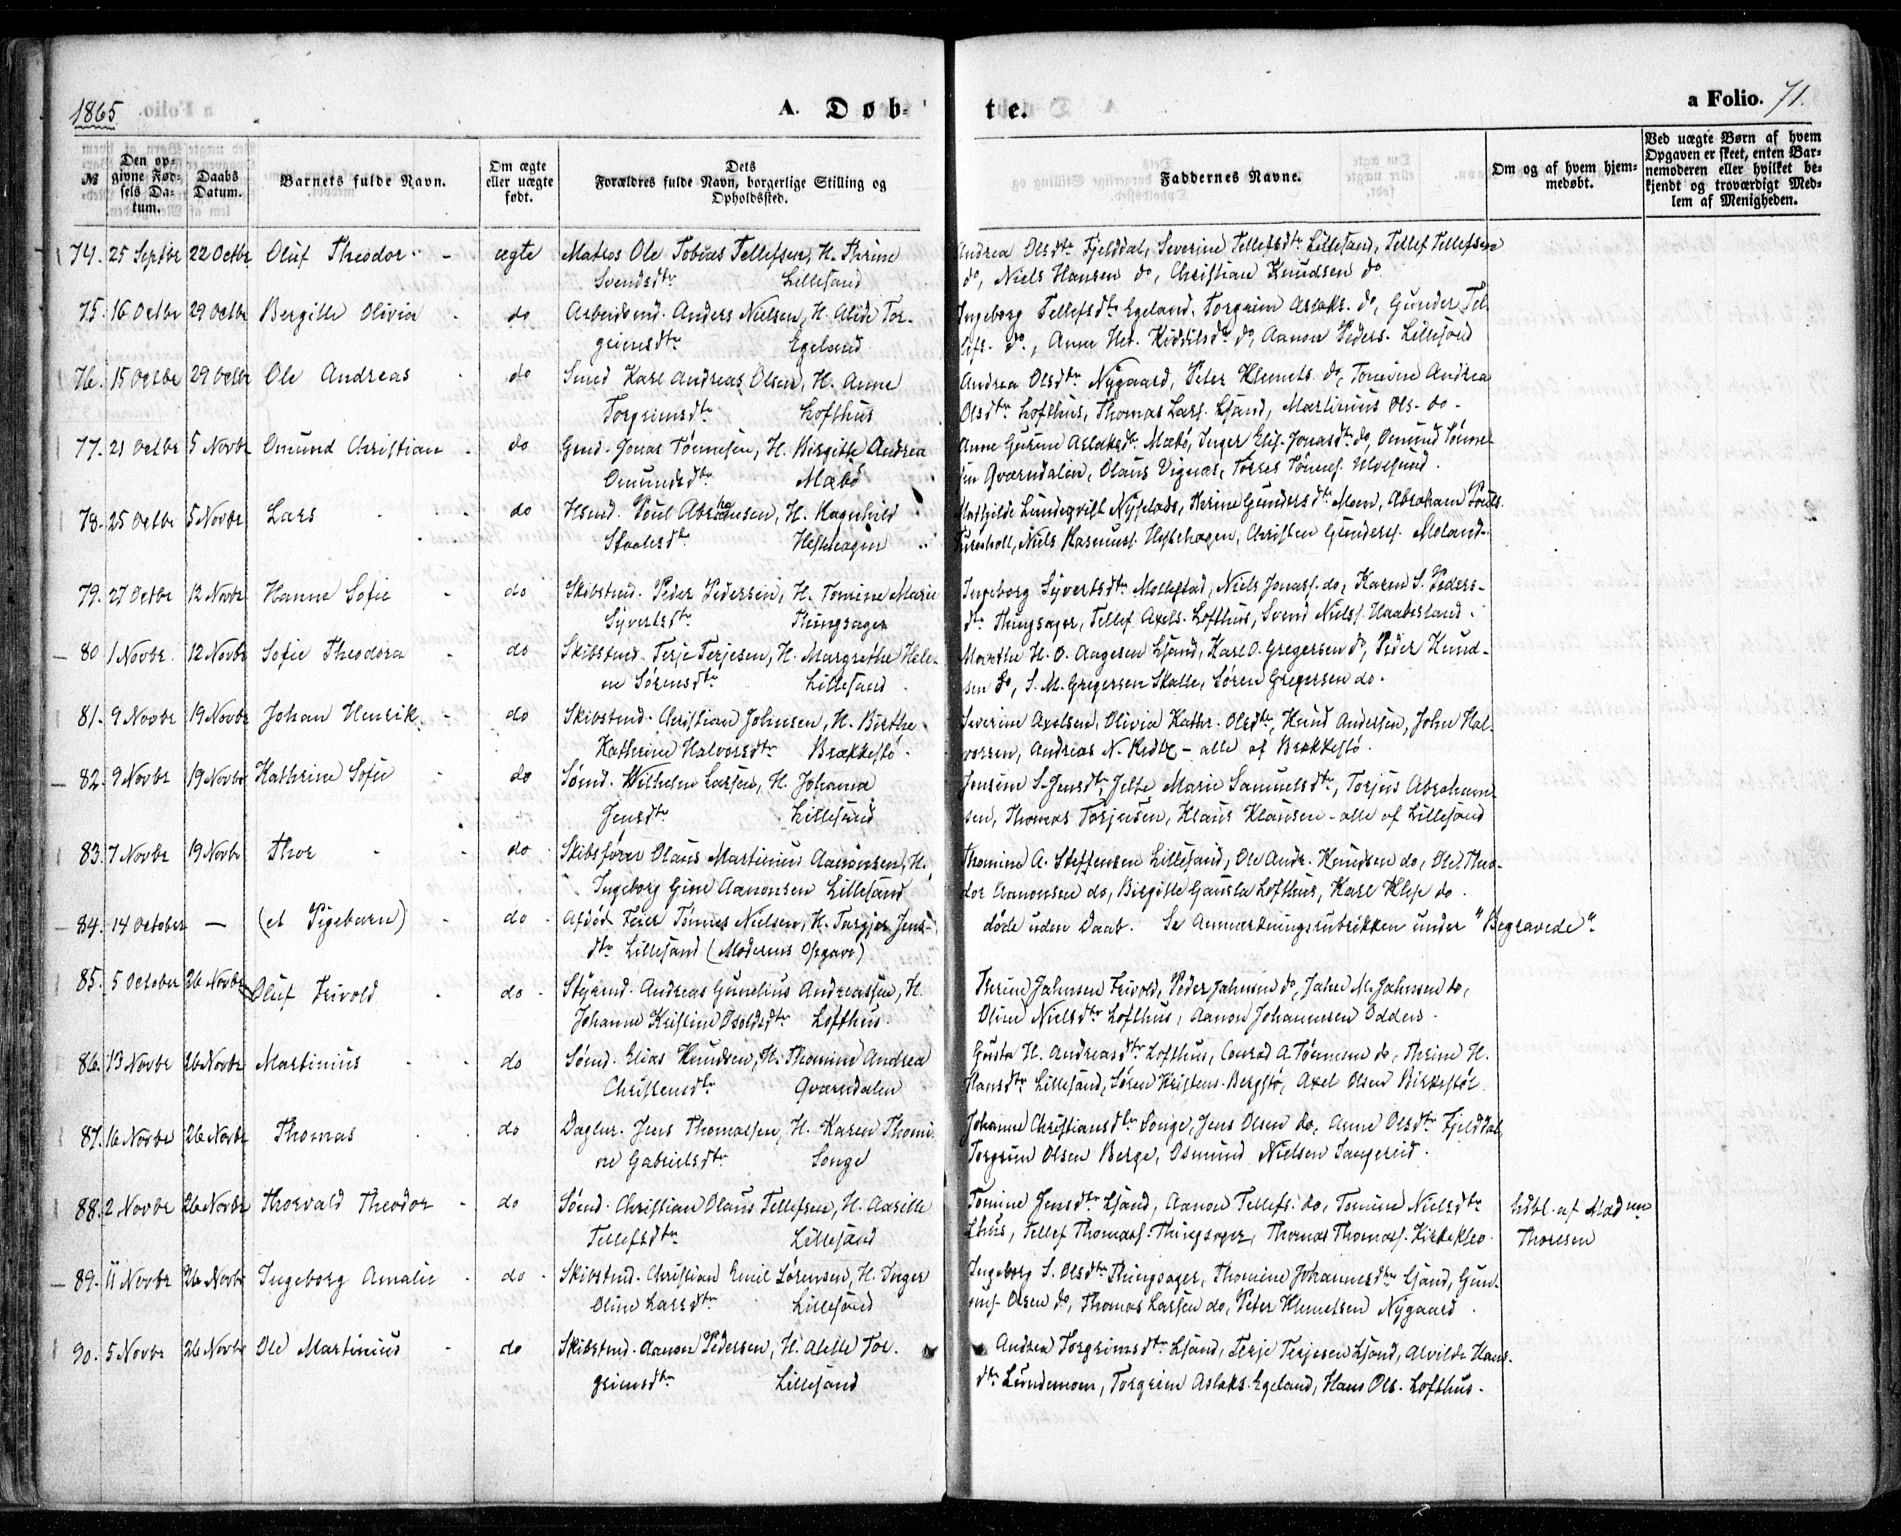 1865
A. Døb-
te.
a Folio. 71.
№
Den op-
givne Fød-
sels Da-
tum.
Daabs
Datum.
Barnets fulde Navn.
Om ægte
eller uægte
født.
Dets
Forældres fulde Navn, borgerlige Stilling og
Opholdssted.
Faddernes Navne.
Om og af hvem hjem-
medøbt.
Ved uægte Børn af hvem
Opgaven er skeet, enten Bar-
nemoderen eller hvilket be-
kjendt og troværdigt Med-
lem af Menigheden.
74. 25 Septbr 22 Octbr Oluf Theodor - ægte Matros Ole Tobias Tellefsen, H. Thrine
Svendsdtr Lillesand
Andrea Olsdtr Fjelddal, Severine Tellefsdtr Lillesand, Tellef Tellefsen
do, Niels Hansen do, Christian Knudsen do
75. 16 Octbr 29 Octbr Bergitte Olivia - do Arbeidsmd. Anders Nielsen, H. Alide Tor-
geimsdtr Egeland
Ingeborg Tellefsdtr Egeland, Torgrim Aslaks. do, Gunder Tel-
lefs. do, Anne Hel. Kiddilsdtr do, Aanon Peders. Lillesand
76. 15 Octbr 29 Octbr Ole Andreas - do Smed Karl Andreas Olsen, H. Anne
Torgrimsdtr Lofthus
Andrea Olsdtr Nygaard, Peter Klemets. do, Tomine Andrea
Olsdtr Lofthus, Thomas Lars. Lsand, Martinius Ols. do -
77. 21 Octbr 5 Novbr Omund Christian - do Gmd. Jonas Tønnesen, H. Birgitte Andrea
Omundsdtr Mæbø
Anne Gurine Aslaksdtr Mæbø, Inger Elis. Jonasdtr do, Omund Tønne-
sen Qværndalen, Olaus Vignæs, Torres Tønnes. Ulvesund.
78. 25 Octbr 5 Novbr Lars - do Hsmd. Poul Abrahamsen, H. Ragnhild
Staalesdtr Hestehagen
Mathilde Lundeqvist Nyplads, Karine Gundersdtr Moen, Abraham Pouls.
Niels Rasmuss. Hestehagen, Christen Gunders. Moland.
79. 27 Octbr 12 Novbr Hanne Sofie - do Skibstmd. Peder Pedersen, H. Tomine Marie
Syvertsdtr Thingsager
Ingeborg Syvertsdtr Mollestad, Niels Jonass. do, Karen S. Peders-
dtr Thingsager, Tellef Axels. Lofthus, Svend Niels. Haabesland.
80 1 Novbr. 12 Novbr Sofie Theodora - do Skibstmd. Terje Terjesen, H. Margrethe Hele-
ne Sørensdtr Lillesand.
Marethe H. O. Aagesen Lsand, Karl O. Gregersen do, Peder Knud-
sen do, S. M. Gregersen Skalle, Søren Gregersen do.
81. 9 Novbr 19 Novbr Johan Henrik. - do Skibstmd. Christian Johnsen, H. Birthe
Kathrine Halvorsdtr Brækkestø.
Severine Axelsen, Olivia Kathr. Olsdtr, Knud Andersen, John Hal-
vorsen, Andreas N. - alle af Brekkestø.
82. 9 Novbr 19 Novbr Kathrine Sofie - do Sømd. Wilhelm Larsen, H. Johanna
Jensdtr Lillesand
Jensine S. Jensdtr, Jelte Marie Samuelsdtr, Torjus Abraham-
sen, Thomas Torjusen, Klaus Klausen - alle af Lillesand
83. 7 Novbr 19 Novbr Thor - do Skibsfører Olaus Martinius Aanonsen, H.
Ingeborg Gine Aanonsen Lillesand
Thomine A. Steffensen Lillesand, Ole Andr. Knudsen do, Ole Theo-
dor Aanonsen do, Birgitte Gausta Lofthus, Karl Klep do.
84. 14 October - (et Pigebarn) - do - Afdød Feier Tønnes Nielsen, H. Torgjer Jens-
dtr Lillesand (Moderens Opgave)
døde uden Daab. Se Anmærkningsrubrikken under "Begravede".
85. 5 October 26 Novbr Oluf Frivold - do - Styrmd. Andreas Gunelius Andreassen, H.
Johanne Kristine Osoldsdtr Lofthus.
Thrine Jahnsen Frivold, Peder Jahnsen do, Jahn M. Jahnsen do,
Oline Nielsdtr Lofthus, Aanon Johannesen Odden.
86. 13 Novbr 26 Novbr Martinius - do Sømd. Elias Knudsen, H. Thomine Andrea
Christensdtr Qværndalen
Gusta H. Andreasdtr Lofthus, Conrad A. Tønnesen do, Thrine H.
Hansdtr Lillesand, Søren Kristens. Bergstø, Axel Olsen Birkestøl
87. 16 Novbr 26 Novbr Thomas - do Daglnr. Jens Thomassen, H. Karen Thomi-
ne Gabrielsdtr Songe
Johanne Christiansdtr Songe, Jens Olsen do, Anne Olsdtr Fjelddal,
Torgrim Olsen Berge, Osmund Nielsen Sangereid.
88. 2 Novbr 26 Novbr Thorvald Theodor - do Sømd. Christian Olaus Tellefsen, H. Aasille
Tellefsdtr Lillesand
Tomine Jensdtr Lsand, Aanon Tellefs. do, Tomine Nielsdtr
Lhus, Tellef Thomass. Thingsager, Thomas Thomass. Kirkekleo.
hdbt. af Madm
Thoresen
89. 11 Novbr 26 Novbr Ingeborg Amalie - do - Skibstmd. Christian Emil Sørensen, H. Inger
Oline Larsdtr Lillesand
Ingeborg S. Olsdtr Thingsager, Thomine Johannesdtr Lsand, Gun-
Olsen do, Thomas Larsen do, Peter Klemetsen Nygaard.
90. 5 Novbr 26 Novbr Ole Martinius - do Skibstmd. Aanon Pedersen, H. Alelle Tor-
grimsdtr Lillesand
Andrea Torgrimsdtr Lsand, Terje Terjesen Lsand, Alvilde Hans-
dtr Lundemoen, Torgrim Aslaks. Egeland, Hans Ols. Lofthus.